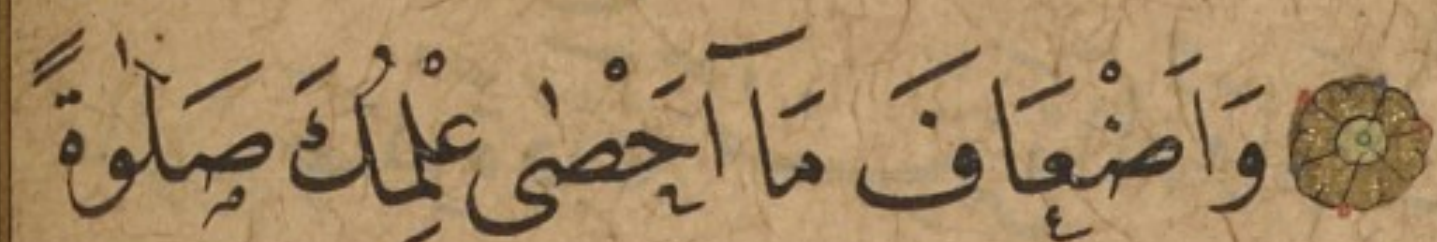 وَاَضْعَافَ مَٓا اَحَصْٰى عِلْمُكَ صَلٰوةً